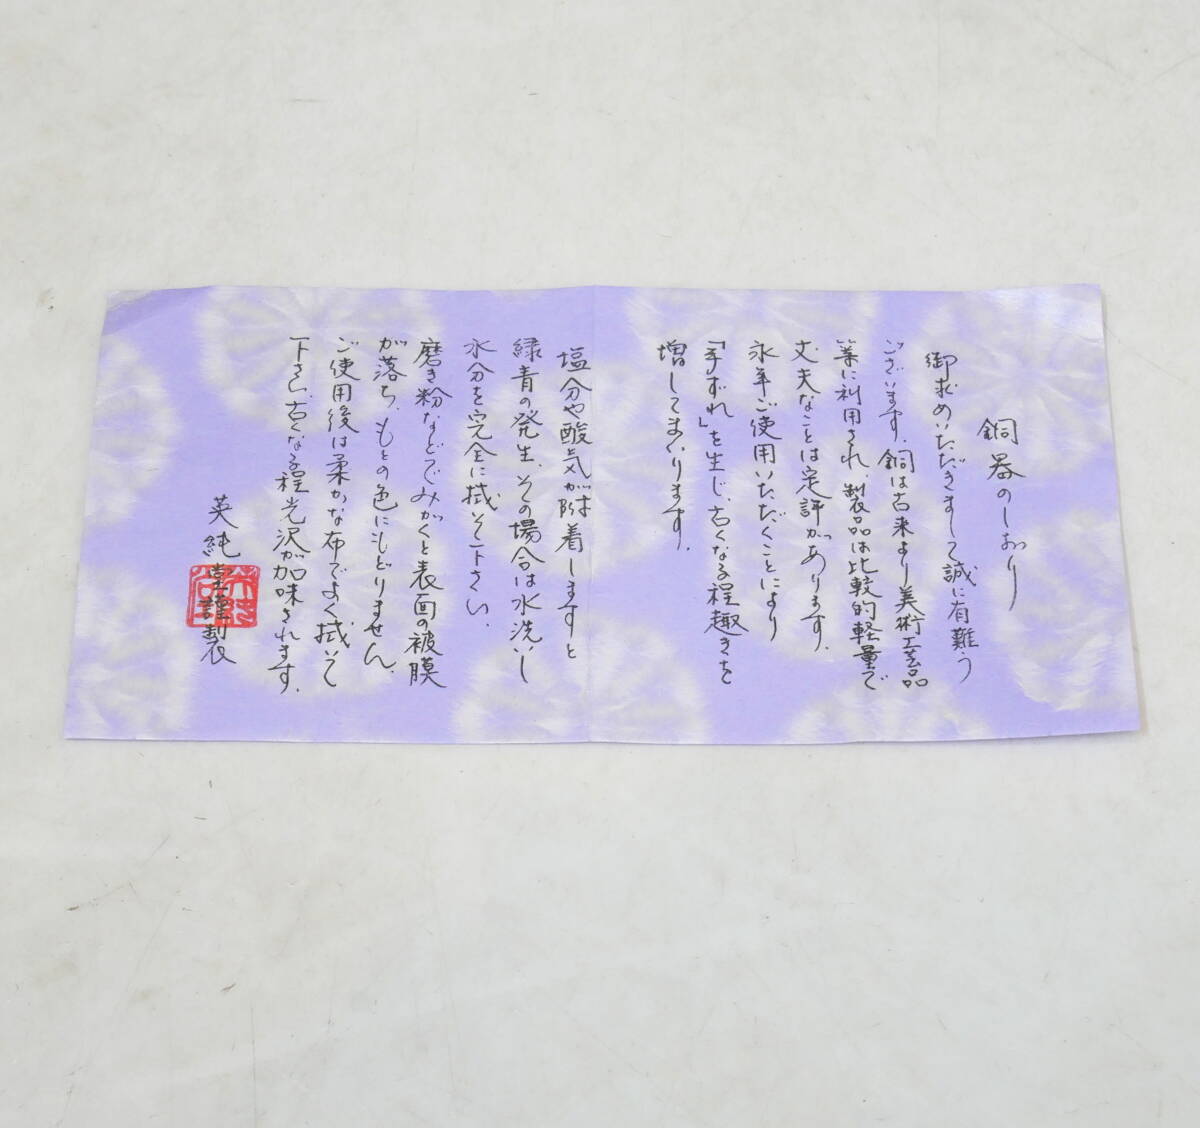 銅器のしおり
御求めいただきまして誠に有難う
ございます。銅は古来より美術工芸品
等に利用され、製品は比較的軽量で
丈夫なことは定評があります。
永年ご使用いただくことにより
「手ずれ」を生じ、古くなる程趣きを
増してまいります。
塩分や酸気が附着しますと
緑青の発生、その場合は水洗いし
水分を完全に拭いて下さい。
磨き粉などでみがくと表面の被膜
が落ち、もとの色にもどりません。
ご使用後は柔かな布でよく拭いて
下さい。古くなる程光沢が加味されます。
英純堂謹製